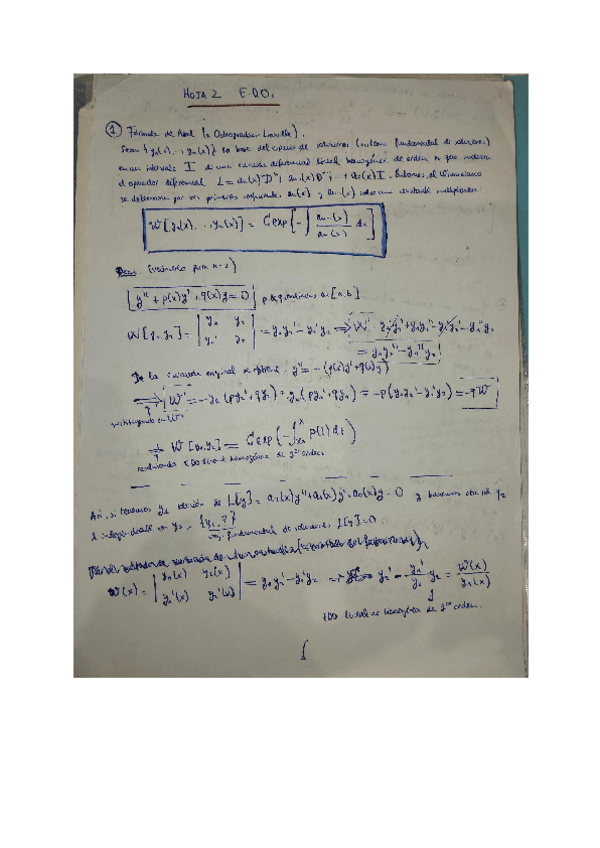 HOJA 2 E.D.O.
① Fórmula de Abel (o Ostrogradski-Liouville).
Sean {y₁(x), ..., yₙ(x)} la base del espacio de soluciones (sistema fundamental de soluciones)
en un intervalo I de una ecuación diferencial lineal homogénea de orden n que
el operador diferencial L = aₙ(x)Dⁿ + aₙ₋₁(x)Dⁿ⁻¹ + ... + a₀(x)I. Entonces, el Wronskiano
se determina por primeros aₙ(x) y aₙ₋₁(x) salvo una constante multiplicativa:
W[y₁(x), ..., yₙ(x)] = C exp[-∫ aₙ₋₁(x)/aₙ(x) dx]
Dem. (para n=2)
y'' + p(x)y' + q(x)y = 0 p, q continuas en [a,b]
W[y₁,y₂] = |y₁ y₂; y₁' y₂'| = y₁y₂' - y₁'y₂ ⟹ W' = y₁'y₂' + y₁y₂'' - y₁'y₂' - y₁''y₂
= y₁y₂'' - y₁''y₂
De la ecuación original se obtiene y'' = -(p(x)y' + q(x)y)
⟹ W' = -y₁(py₂' + qy₂) + y₂(py₁' + qy₁) = -p(y₁y₂' - y₁'y₂) = -pW
sustituyendo en W'
⟹ W[y₁,y₂] = C exp(-∫ₓ₀ˣ p(t)dt)
resolviendo EDO lineal homogénea de 1er orden
Así, si tenemos y₁ solución de L[y] = a₂(x)y'' + a₁(x)y' + a₀(x)y = 0 y buscamos otra sol y₂
{y₁, ?}
fundamental de soluciones L[y]=0
W(x) = |y₁(x) y₂(x); y₁'(x) y₂'(x)| = y₁y₂' - y₁'y₂ ⟹ y₂' - y₁'/y₁ y₂ = W(x)/y₁(x)
EDO lineal no homogénea de 1er orden.
1